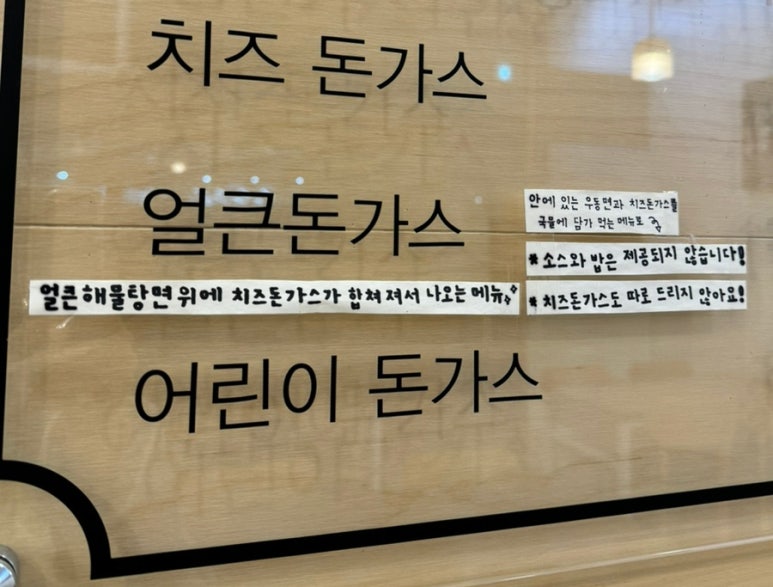 치즈 돈가스
얼큰돈가스
안에 있는 우동면과 치즈돈가스를
국물에 담가 먹는 메뉴로
*소스와 밥은 제공되지 않습니다!
얼큰해물탕면위에 치즈돈가스가 합쳐져서 나오는 메뉴
*치즈돈가스도 따로 드리지 않아요!
어린이 돈가스